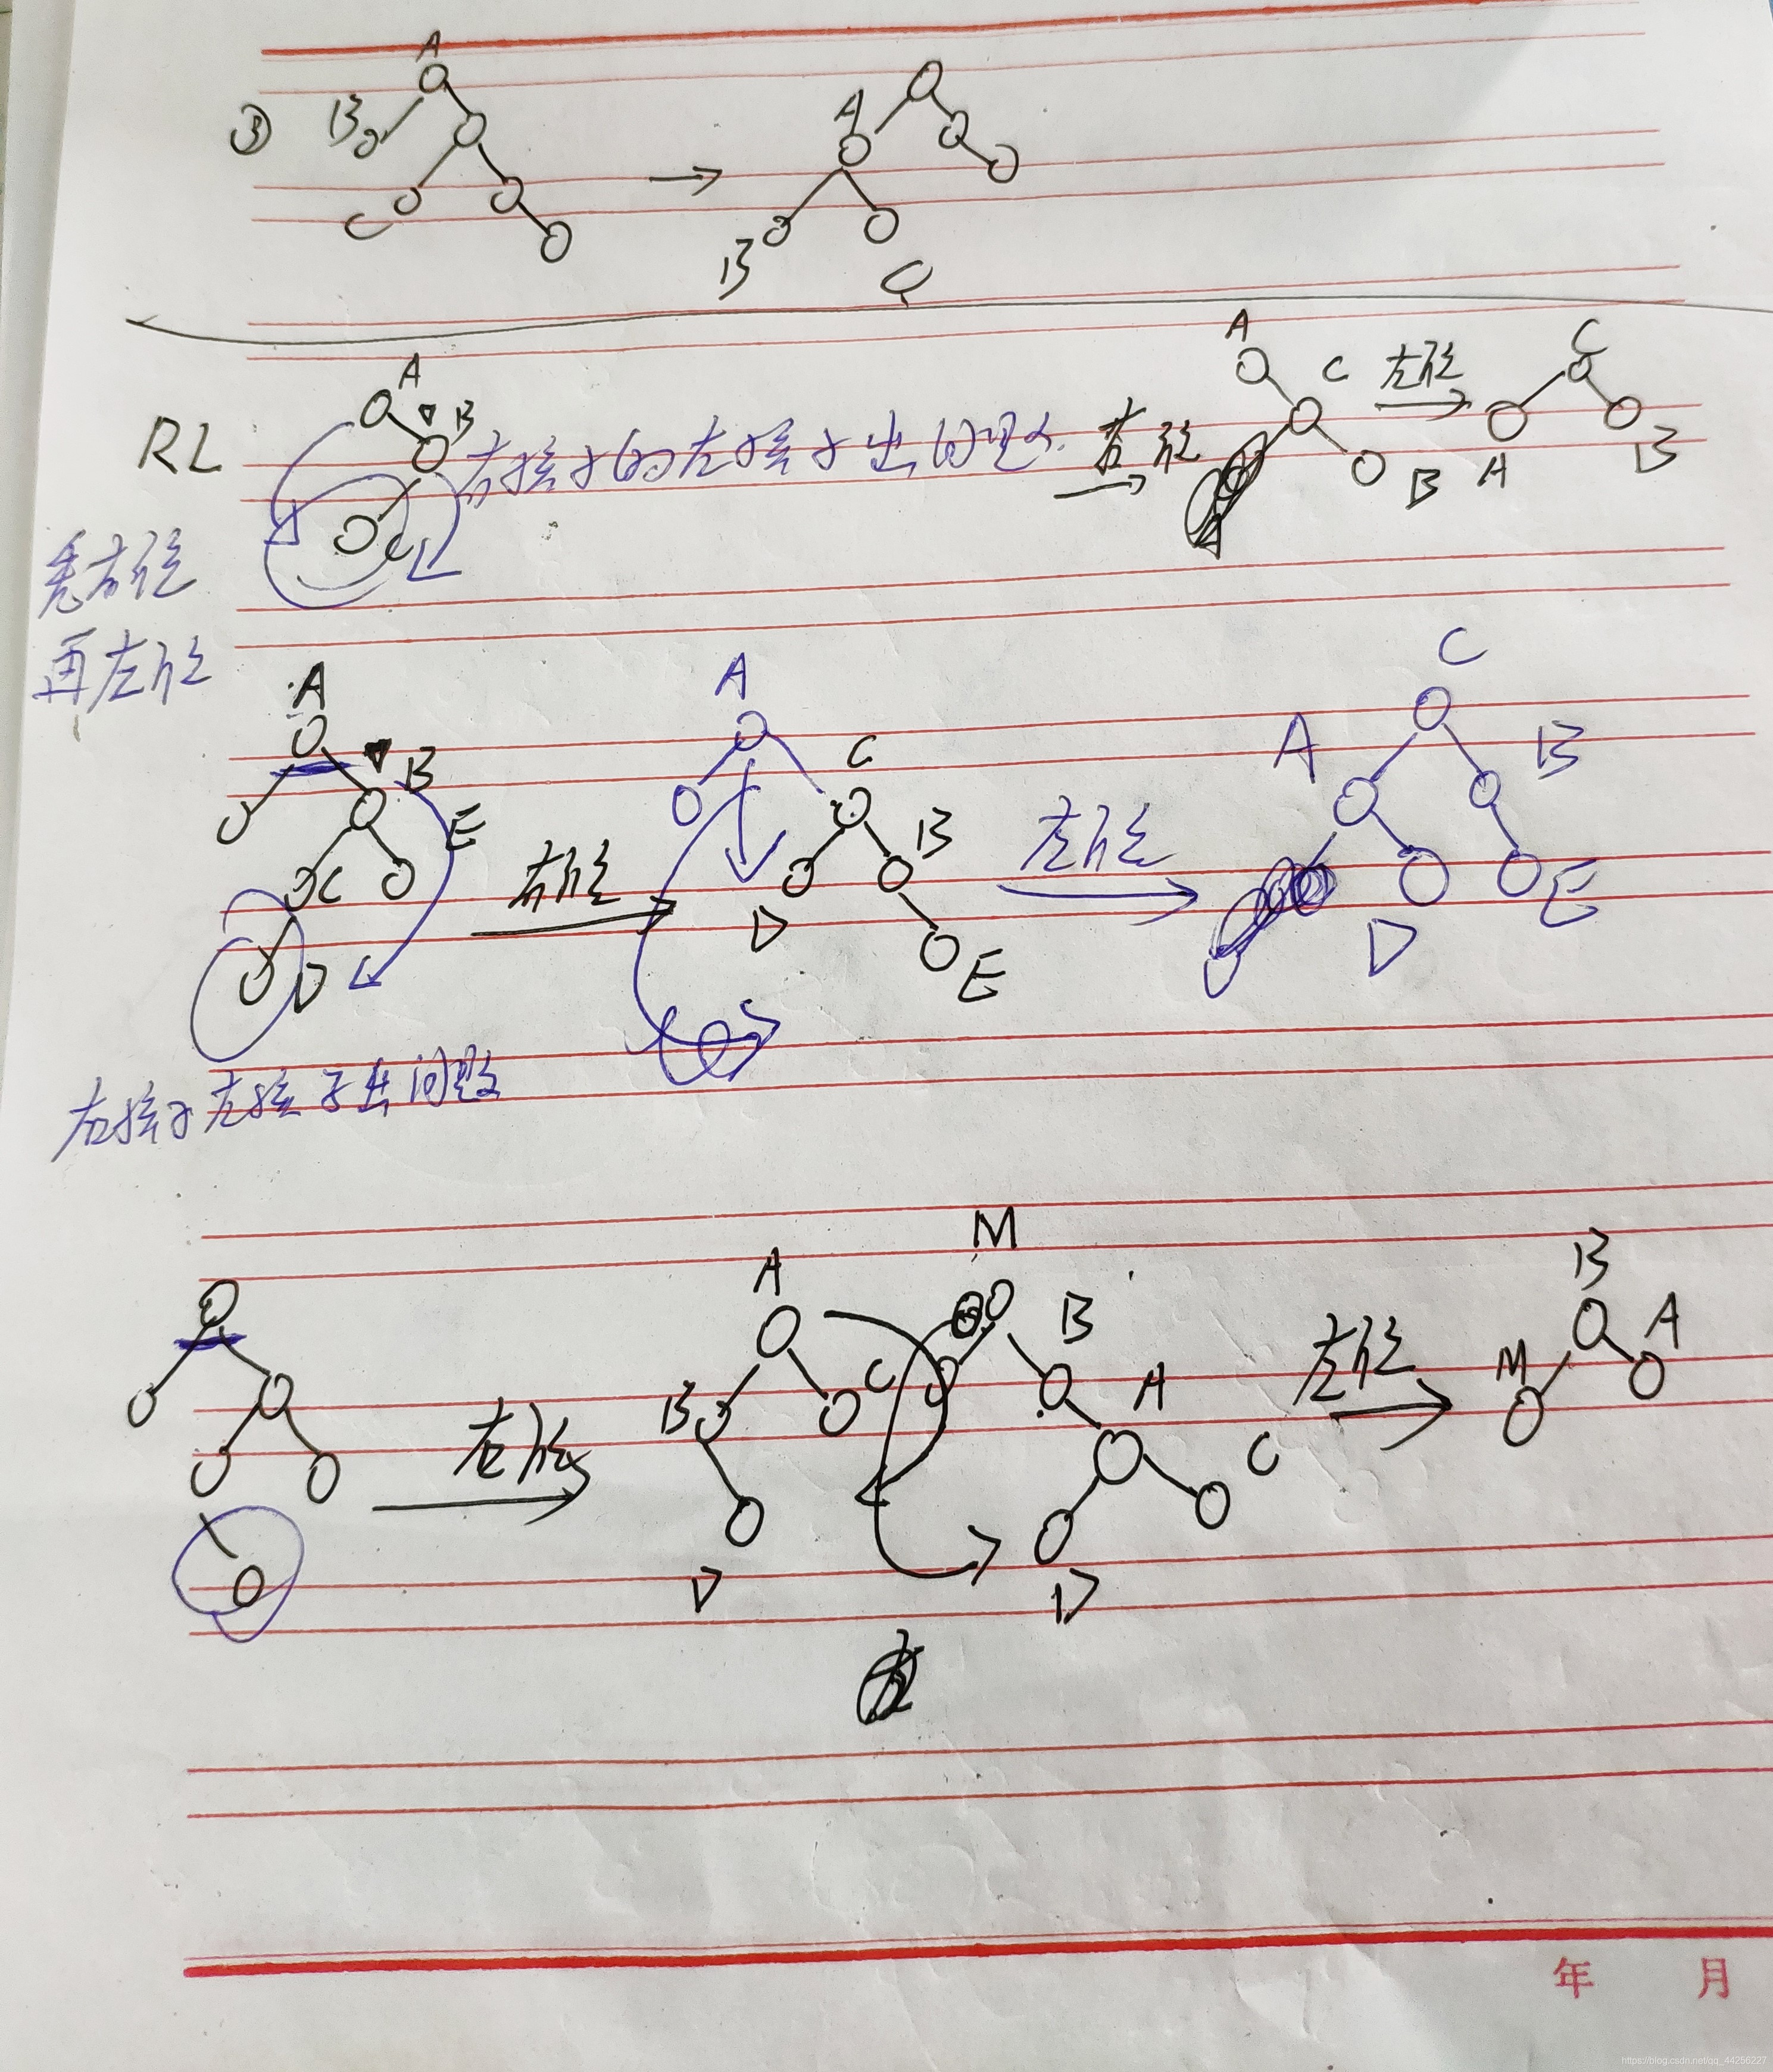 ③ A B C → A B C
RL A B C 右孩子的左孩子出问题 右旋 A C B 左旋 C A B
先右旋
再左旋
A B E C D 右旋 A C B D E 左旋 C A B D E
右孩子左孩子出问题
左旋 A B C D M B A C D 左旋 B M A
年 月
https://blog.csdn.net/qq_44256227